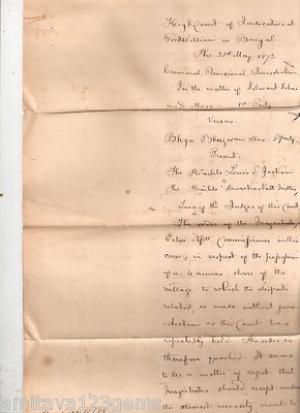 High Court of Judicature at
Fort William in Bengal.
The 21st May 1873
Criminal Revisional Jurisdiction
In the matter of Edward
and 1st Party
Versus
Bhya 2d Party
Present;
The Honble Louis S Jackson
The Honble
two of the Judges of this Court
The order of the
Extra Asstt Commissioner in this
case, in respect of the
of a 4 annas share of the
village to which the dispute
related, is made without juris-
diction as this Court has
repeatedly held. The order is
therefore quashed. It seems
to be a matter of regret that
Magistrates should except under
the utmost necessity
amitava123gems